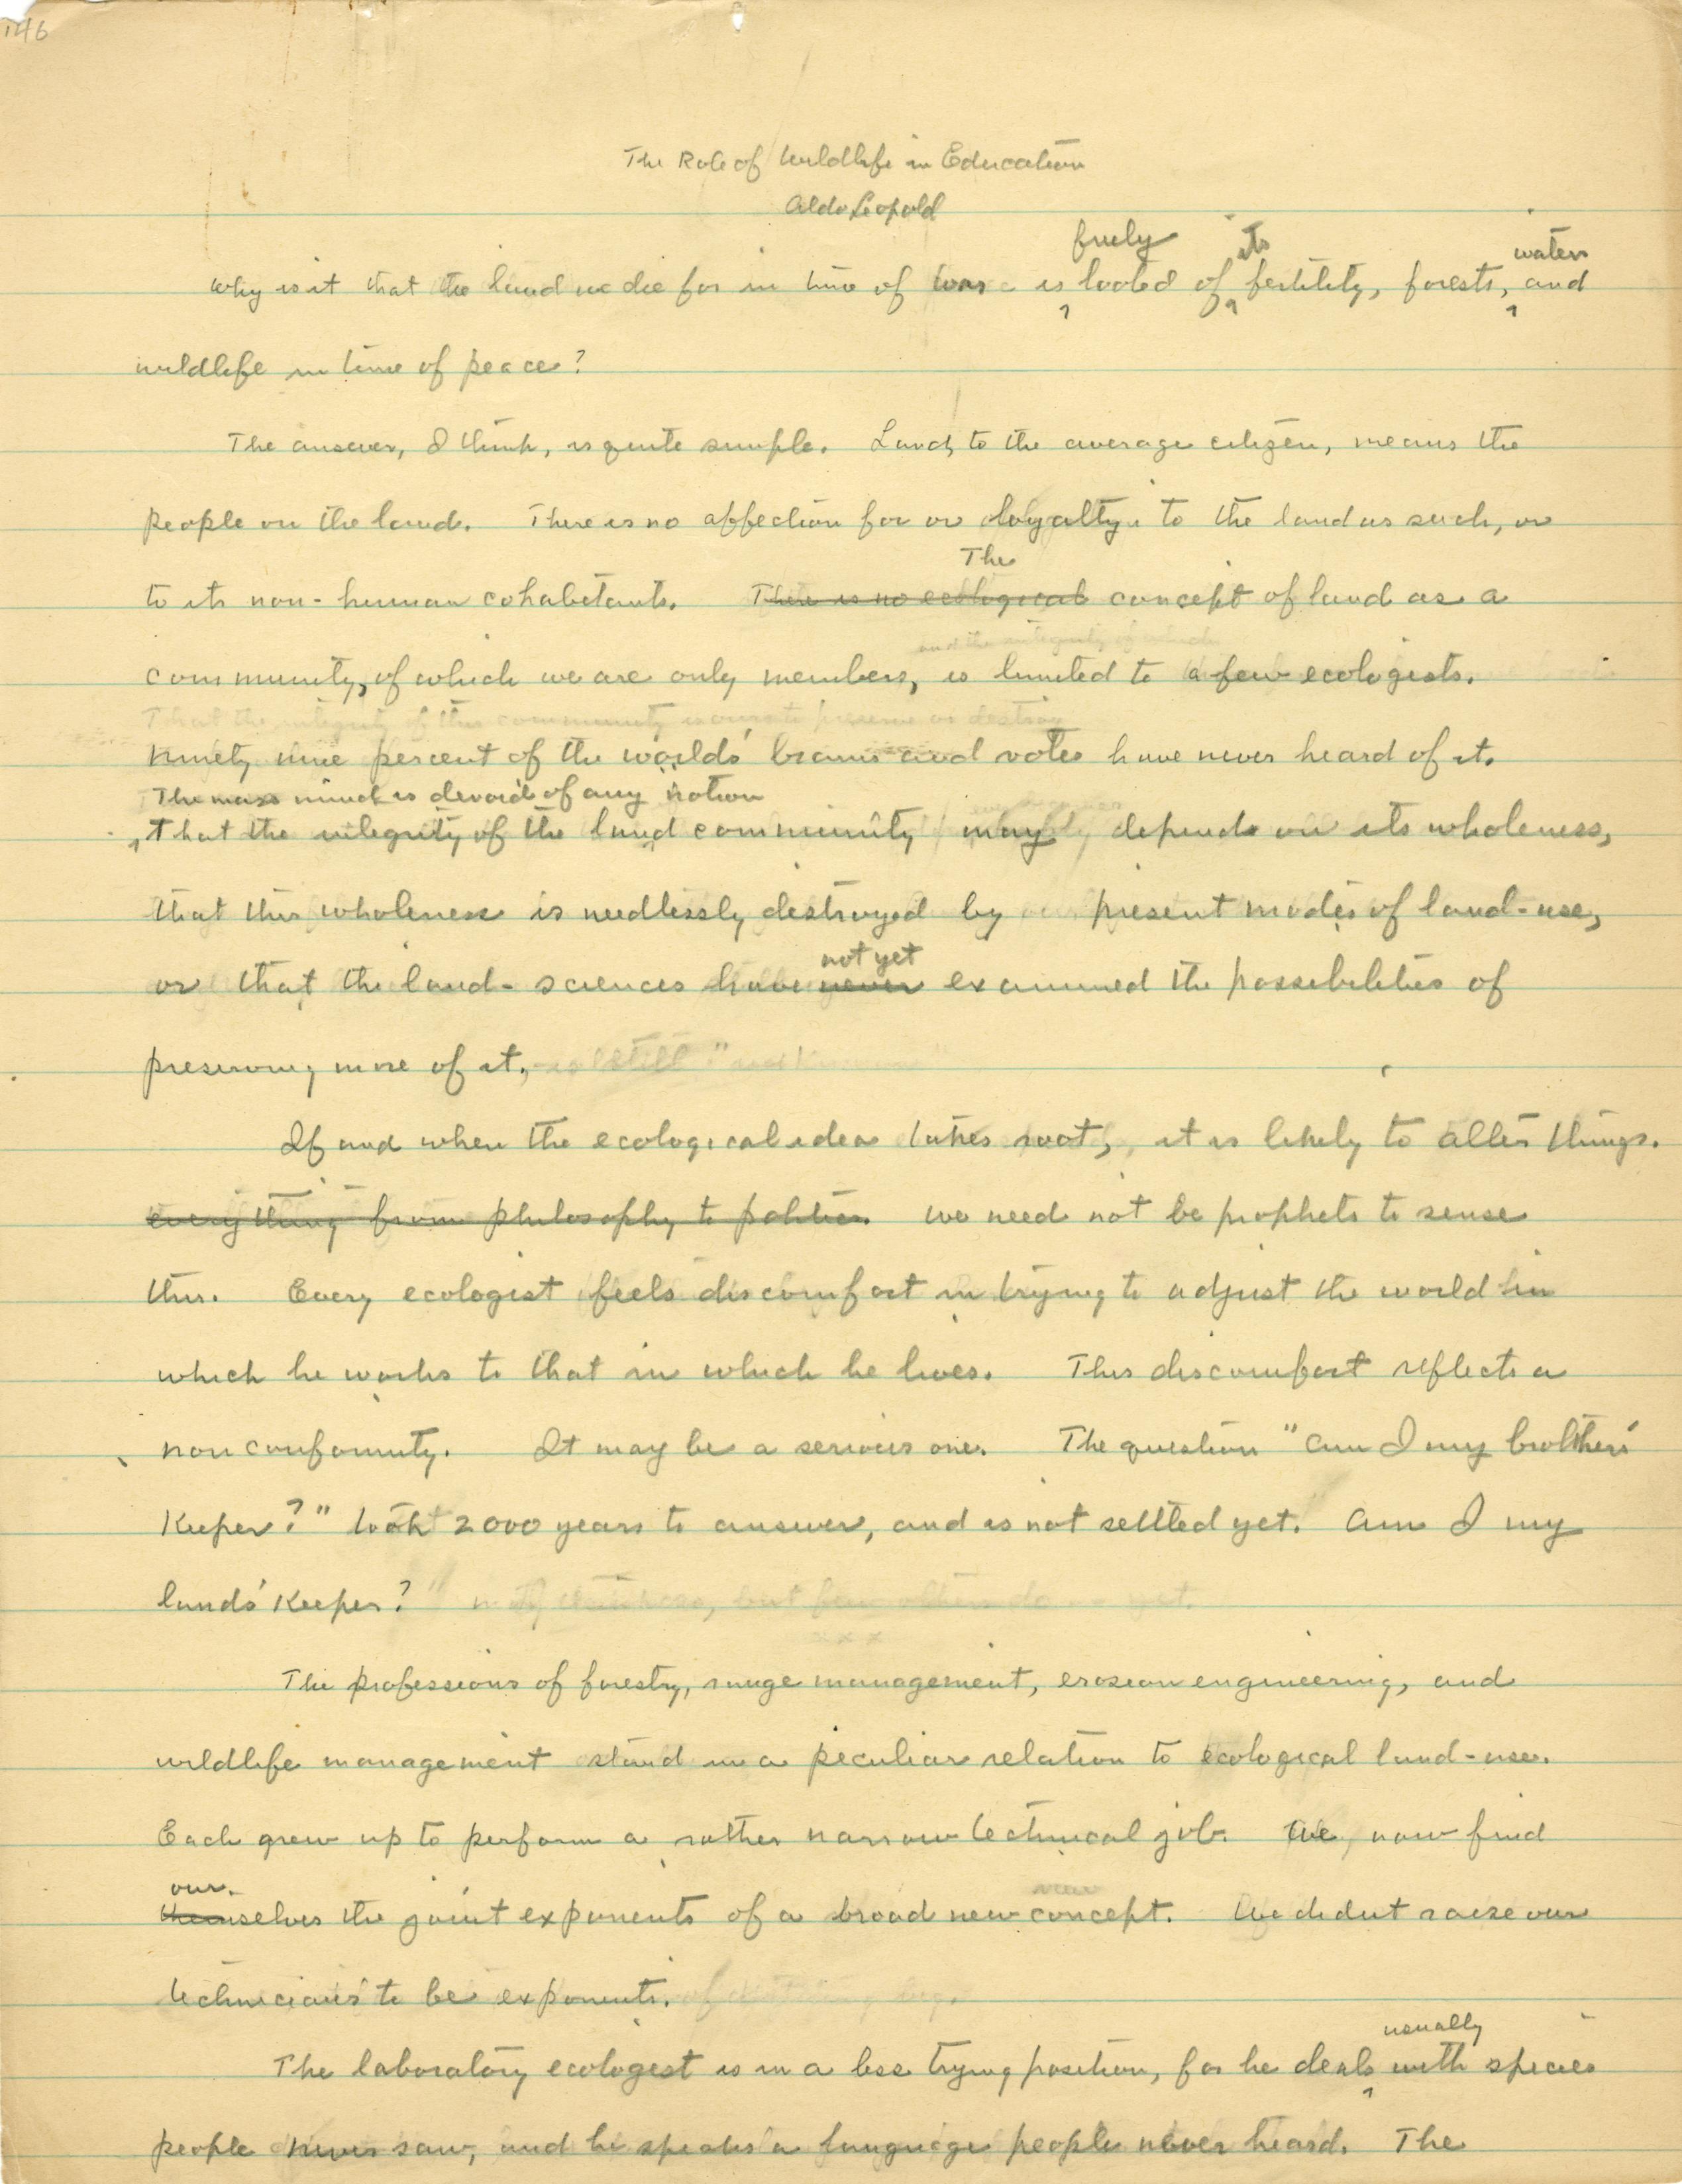 146
The Role of Wildlife in Education
Aldo Leopold
freely its waters
Why is it that the land we die for in time of war is looted of fertility, forests, and
wildlife in time of peace?
The answer, I think, is quite simple. Land, to the average citizen, means the
people on the land. There is no affection for or loyalty to the land as such, or
The
to its non-human cohabitants. There is no ecological concept of land as a
and the integrity of which
community, of which we are only members, is limited to a few ecologists.
That the integrity of this community is ours to preserve or destroy
Ninety nine percent of the world's brains and votes have never heard of it.
The mass mind is devoid of any notion
that the integrity of the land community may depend on its wholeness,
that this wholeness is needlessly destroyed by present modes of land-use,
not yet
or that the land-sciences have never examined the possibilities of
preserving more of it.
If and when the ecological idea takes root, it is likely to alter things.
everything from philosophy to politics. We need not be prophets to sense
this. Every ecologist feels discomfort in trying to adjust the world in
which he works to that in which he lives. This discomfort reflects a
non conformity. It may be a serious one. The question "Am I my brother's
Keeper?" took 2000 years to answer, and is not settled yet. Am I my
land's Keeper?
x x x
The professions of forestry, range management, erosion engineering, and
wildlife management stand in a peculiar relation to ecological land-use.
Each grew up to perform a rather narrow technical job. We now find
our-
themselves the joint exponents of a broad new concept. We didn't raise our
technicians to be exponents.
usually
The laboratory ecologist is in a less trying position, for he deals with species
people never saw, and he speaks a language people never heard. The